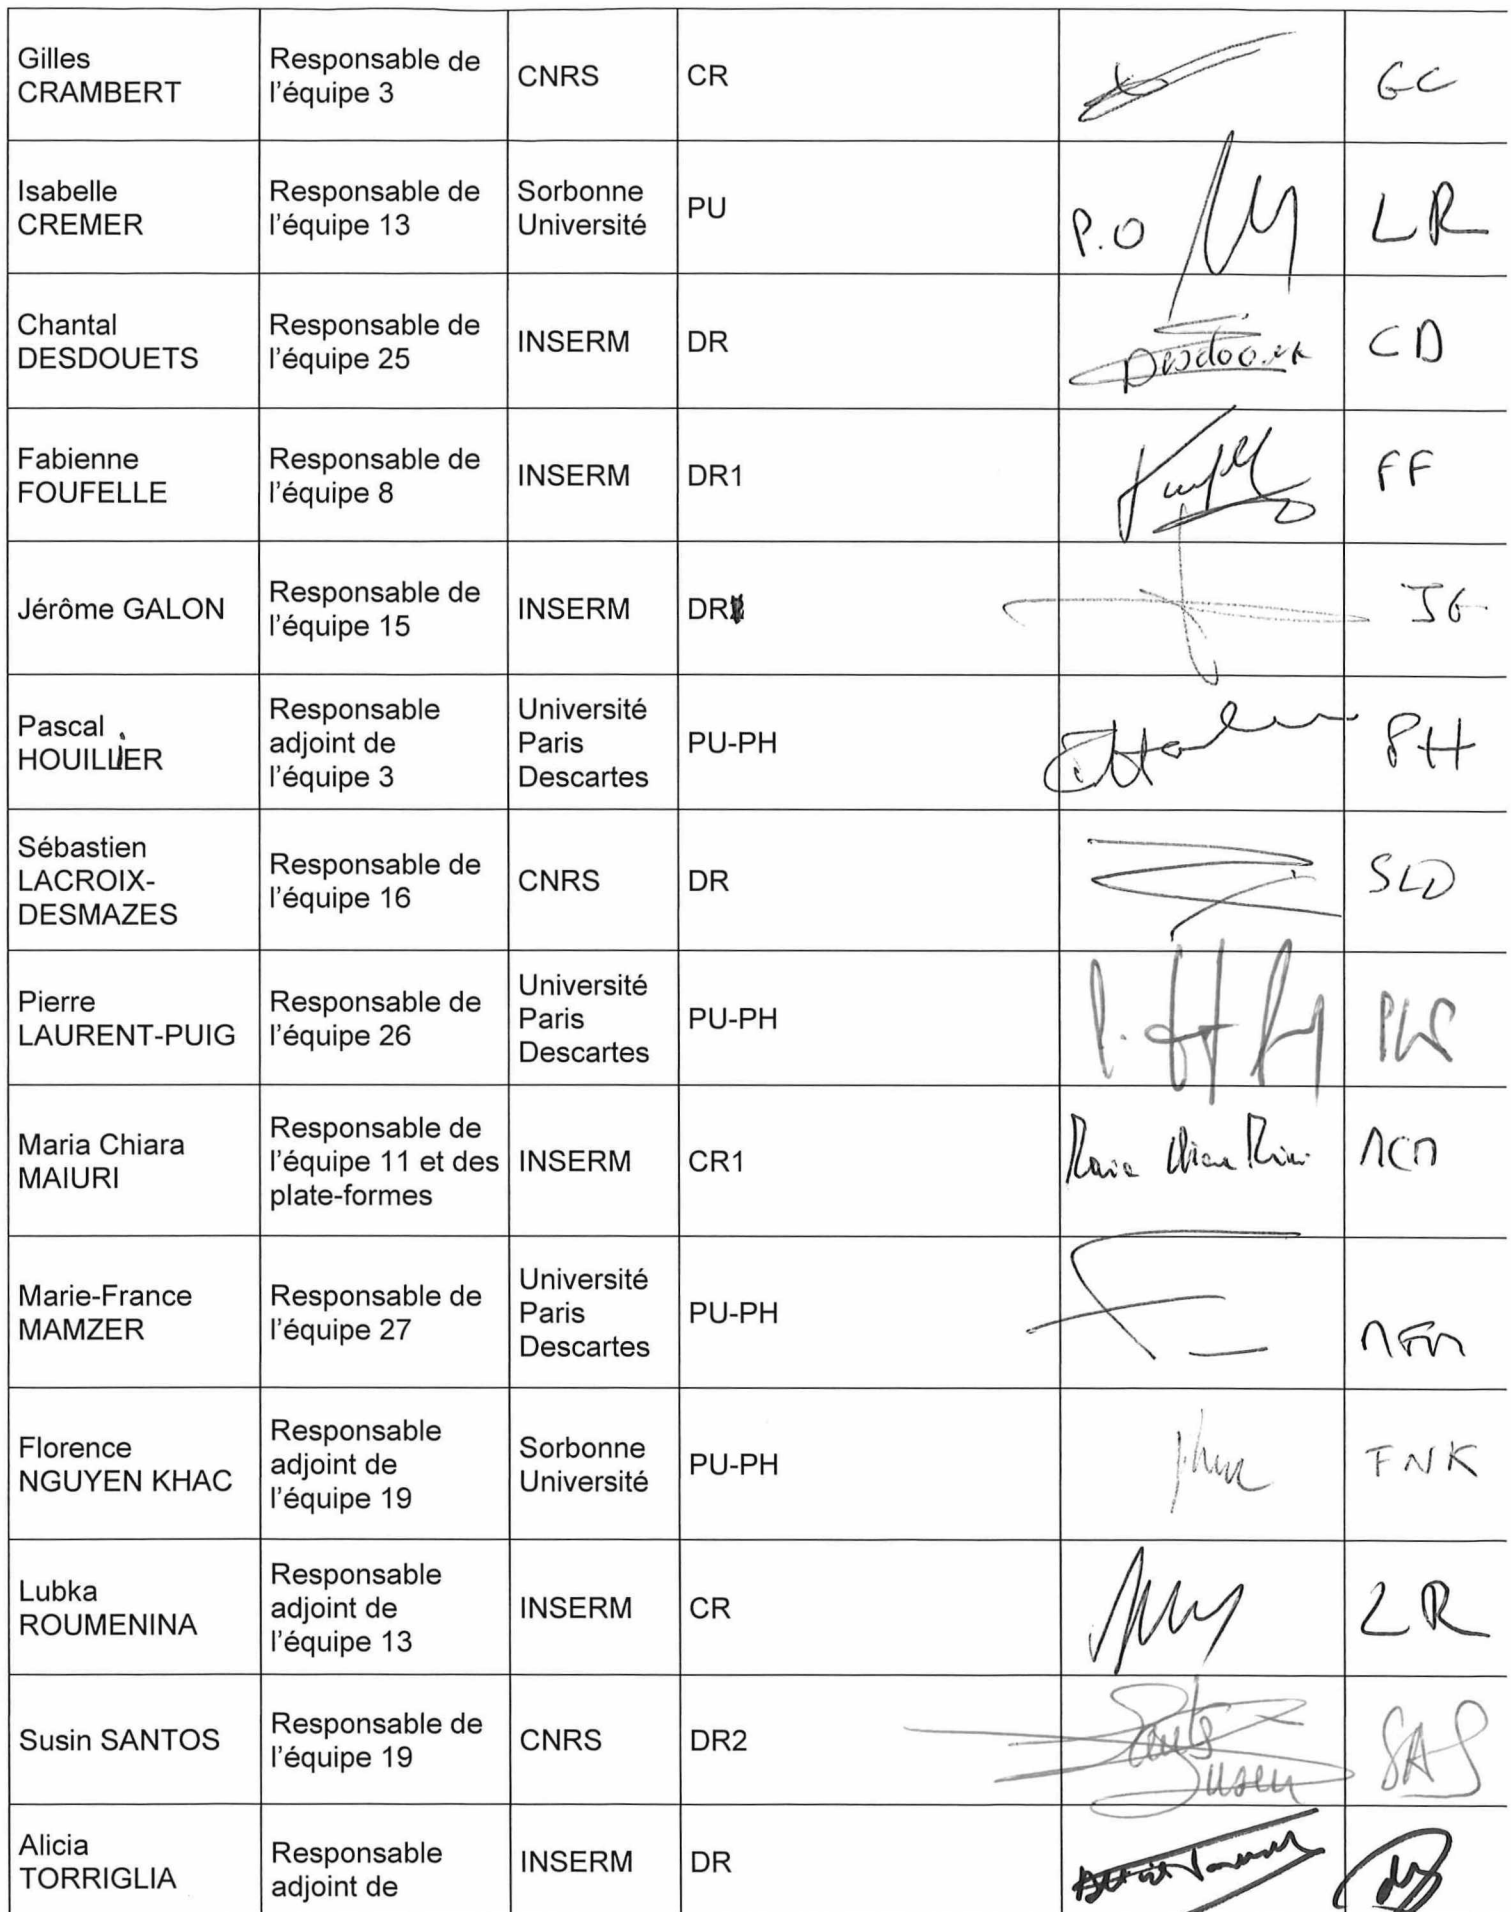 Gilles
CRAMBERT
Responsable de
l'équipe 3
CNRS
CR
GC
Isabelle
CREMER
Responsable de
l'équipe 13
Sorbonne
Université
PU
P.O
LR
Chantal
DESDOUETS
Responsable de
l'équipe 25
INSERM
DR
CD
Fabienne
FOUFELLE
Responsable de
l'équipe 8
INSERM
DR1
FF
Jérôme GALON
Responsable de
l'équipe 15
INSERM
DR
JG
Pascal
HOUILLIER
Responsable
adjoint de
l'équipe 3
Université
Paris
Descartes
PU-PH
PH
Sébastien
LACROIX-
DESMAZES
Responsable de
l'équipe 16
CNRS
DR
SLD
Pierre
LAURENT-PUIG
Responsable de
l'équipe 26
Université
Paris
Descartes
PU-PH
Maria Chiara
MAIURI
Responsable de
l'équipe 11 et des
plate-formes
INSERM
CR1
MCM
Marie-France
MAMZER
Responsable de
l'équipe 27
Université
Paris
Descartes
PU-PH
MFM
Florence
NGUYEN KHAC
Responsable
adjoint de
l'équipe 19
Sorbonne
Université
PU-PH
FNK
Lubka
ROUMENINA
Responsable
adjoint de
l'équipe 13
INSERM
CR
LR
Susin SANTOS
Responsable de
l'équipe 19
CNRS
DR2
Santos
Susin
SAS
Alicia
TORRIGLIA
Responsable
adjoint de
INSERM
DR